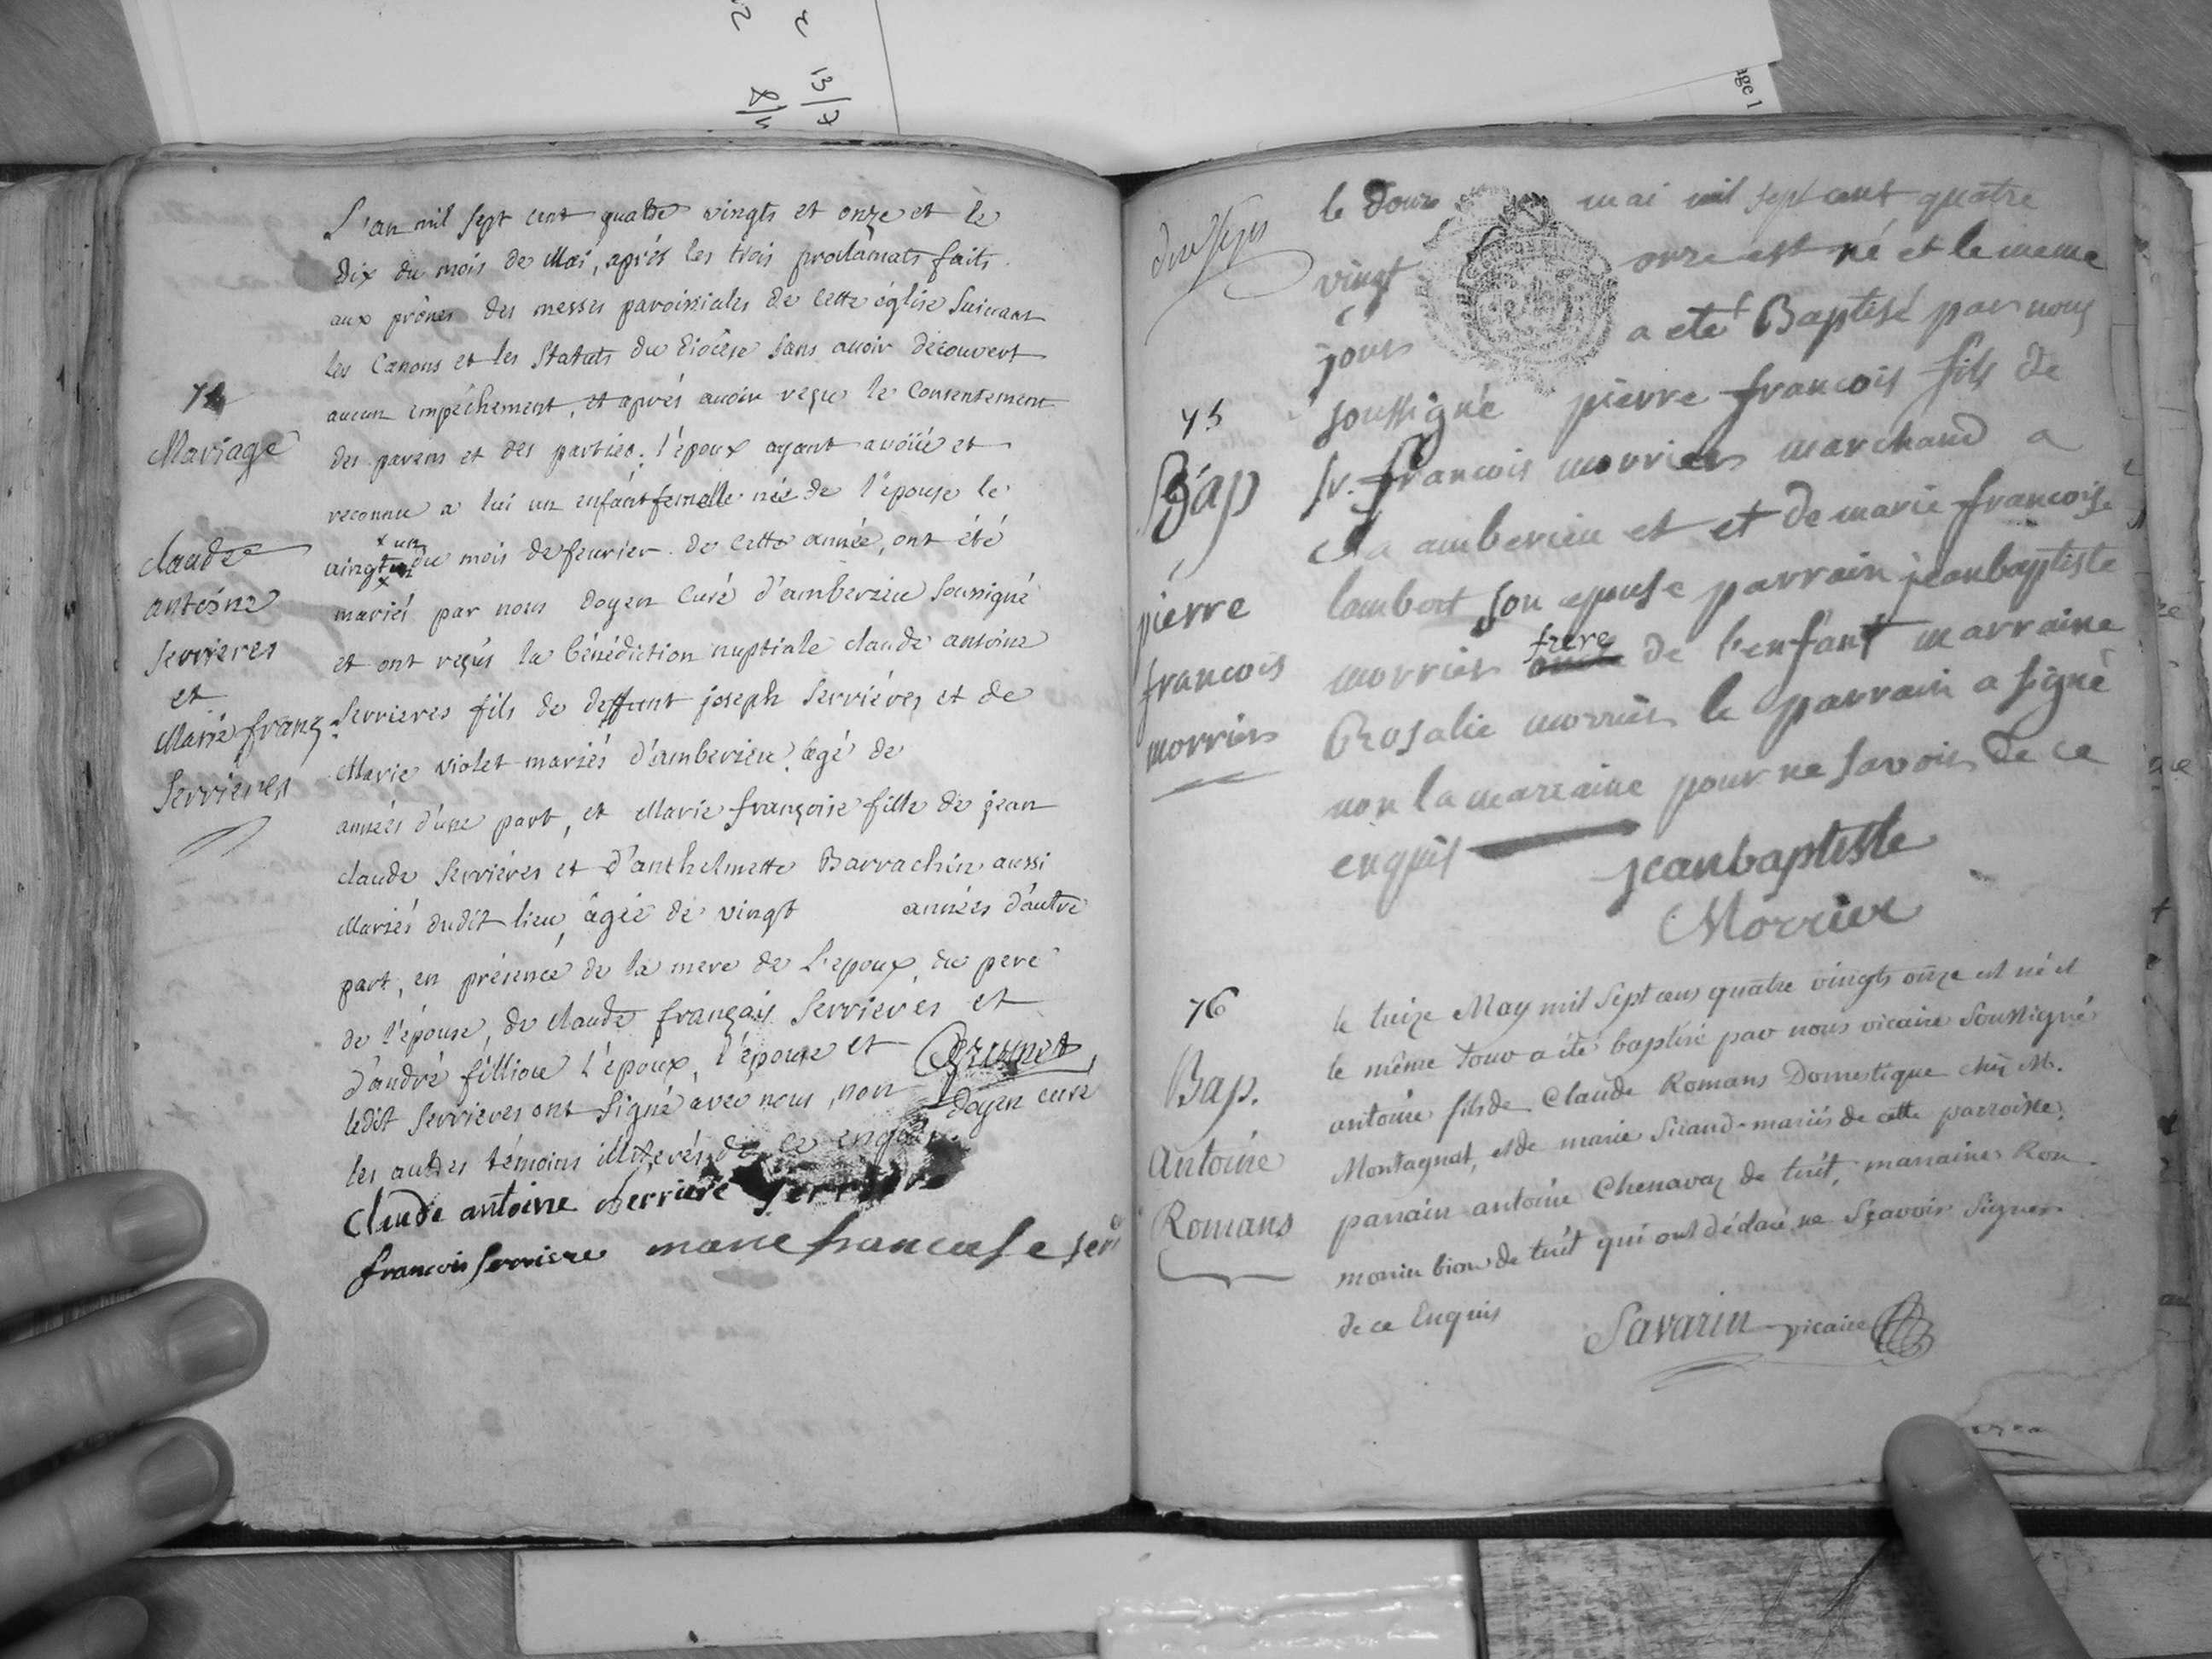 L'an mil sept cent quatre vingts et onze et le
dix du mois de Mai, aprés les trois proclamats faits
aux prônes des messes paroissiales de cette église Suivant
les Canons et les Statuts du diocèse sans avoir découvert
aucun empéchement, et aprés avoir reçu le Consentement
des parens et des parties; l'époux ayant avoüé et
reconnu a lui un enfant femelle née de l'épouse le
x un
vingt du mois de fevrier de cette année, ont été
mariés par nous doyen Curé d'amberieu soussigné
et ont reçus la bénédiction nuptiale claude antoine
Serrieres fils de deffunt joseph Serriéres et de
Marie violet mariés d'amberieu, âgé de
années d'une part, et Marie françoise fille de jean
claude Serriéres et d'anthelmette Barrachin aussi
Mariés dudit lieu, âgée de vingt années d'autre
part, en présence de la mere de L'époux, du pere
de l'épouse, de claude français Serrieres et
d'andré fillion l'époux, l'épouse et
ledit Serrieres ont signé avec nous, non
les autres témoins illiterés de ce enquis.
Brunet
doyen curé
Claude antoine serriere
francois serriere marie francoise seri
74
Mariage
claude
antoine
serrieres
et
Marie franç.
Serrieres
le douze mai mil sept cent quatre
vingt onze est né et le meme
jour a eté Baptisé par nous
soussigné pierre francois fils de
sr. francois morrier marchand a
amberieu et et de marie francoise
lambert son epouse parrain jeanbaptiste
frere
morrier de l'enfant marraine
Rosalie morrier le parrain a signé
non la marraine pour ne savoir de ce
enquis
jeanbaptiste
Morrier
75
Bap
pierre
francois
morrier
76
Bap.
Antoine
Romans
le treize May mil sept cens quatre vingts onze est né et
le même jour a été baptisé par nous vicaire soussigné
antoine fils de Claude Romans Domestique chez M.
Montagnat, et de marie mariés de cette parroisse.
parrain antoine Chenavaz de tiret, marraine
de tiret qui ont déclaré ne sçavoir signer
de ce Enquis
Savarin vicaire